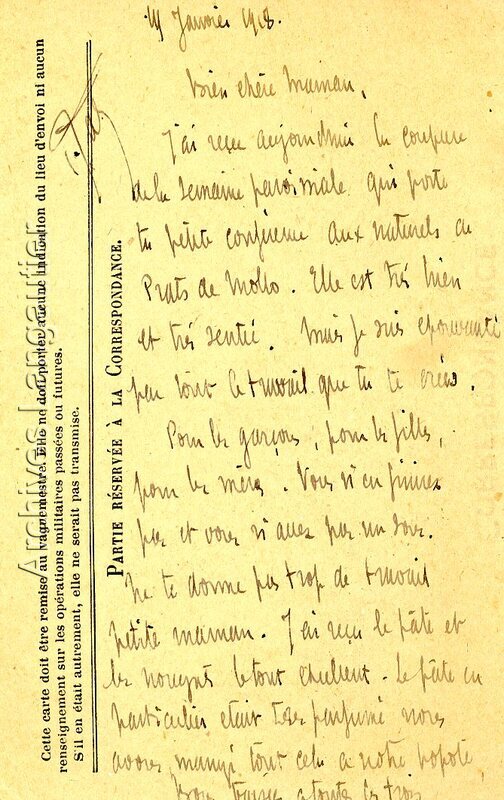 19 Janvier 1918.
Bien chère maman,
J'ai reçu aujourd'hui la coupure
de la semaine paroissiale qui porte
ta petite conférence aux naturels de
Prats de Mollo. Elle est très bien
et très sentie. Mais je suis épouvanté
par tout le travail que tu te crées.
Pour les garçons, pour les filles,
pour les mères. Vous n'en finirez
pas et vous n'avez pas un sou.
Ne te donne pas trop de travail
petite maman. J'ai reçu le pâté et
les nougats le tout excellent. Le pâté en
particulier était très parfumé nous
avons mangé tout cela a notre popote
Bons baisers a toutes les trois
PARTIE RÉSERVÉE À LA CORRESPONDANCE.
Cette carte doit être remise au vaguemestre. Elle ne doit porter aucune indication du lieu d'envoi ni aucun
renseignement sur les opérations militaires passées ou futures.
S'il en était autrement, elle ne serait pas transmise.
Archives Langautier